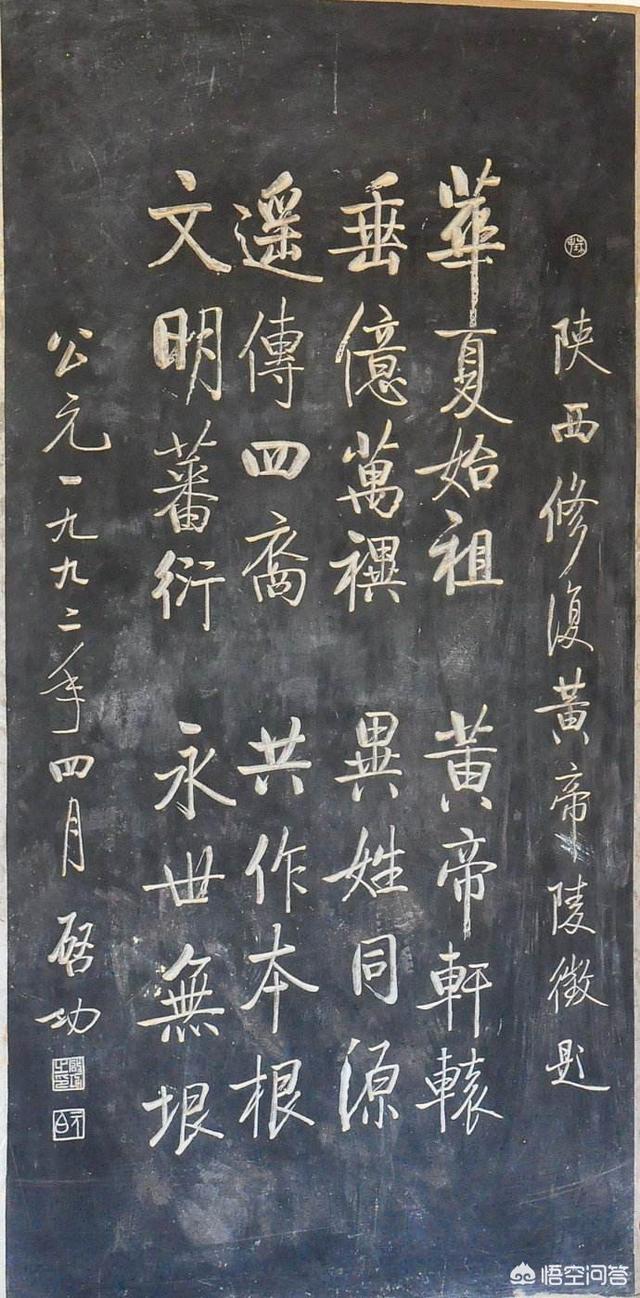 陝西修復黃帝陵徵題
華夏始祖 黃帝軒轅
垂億萬禩 異姓同源
遥傳四裔 共作本根
文明蕃衍 永世無垠
公元一九九二年四月 啓功
悟空问答